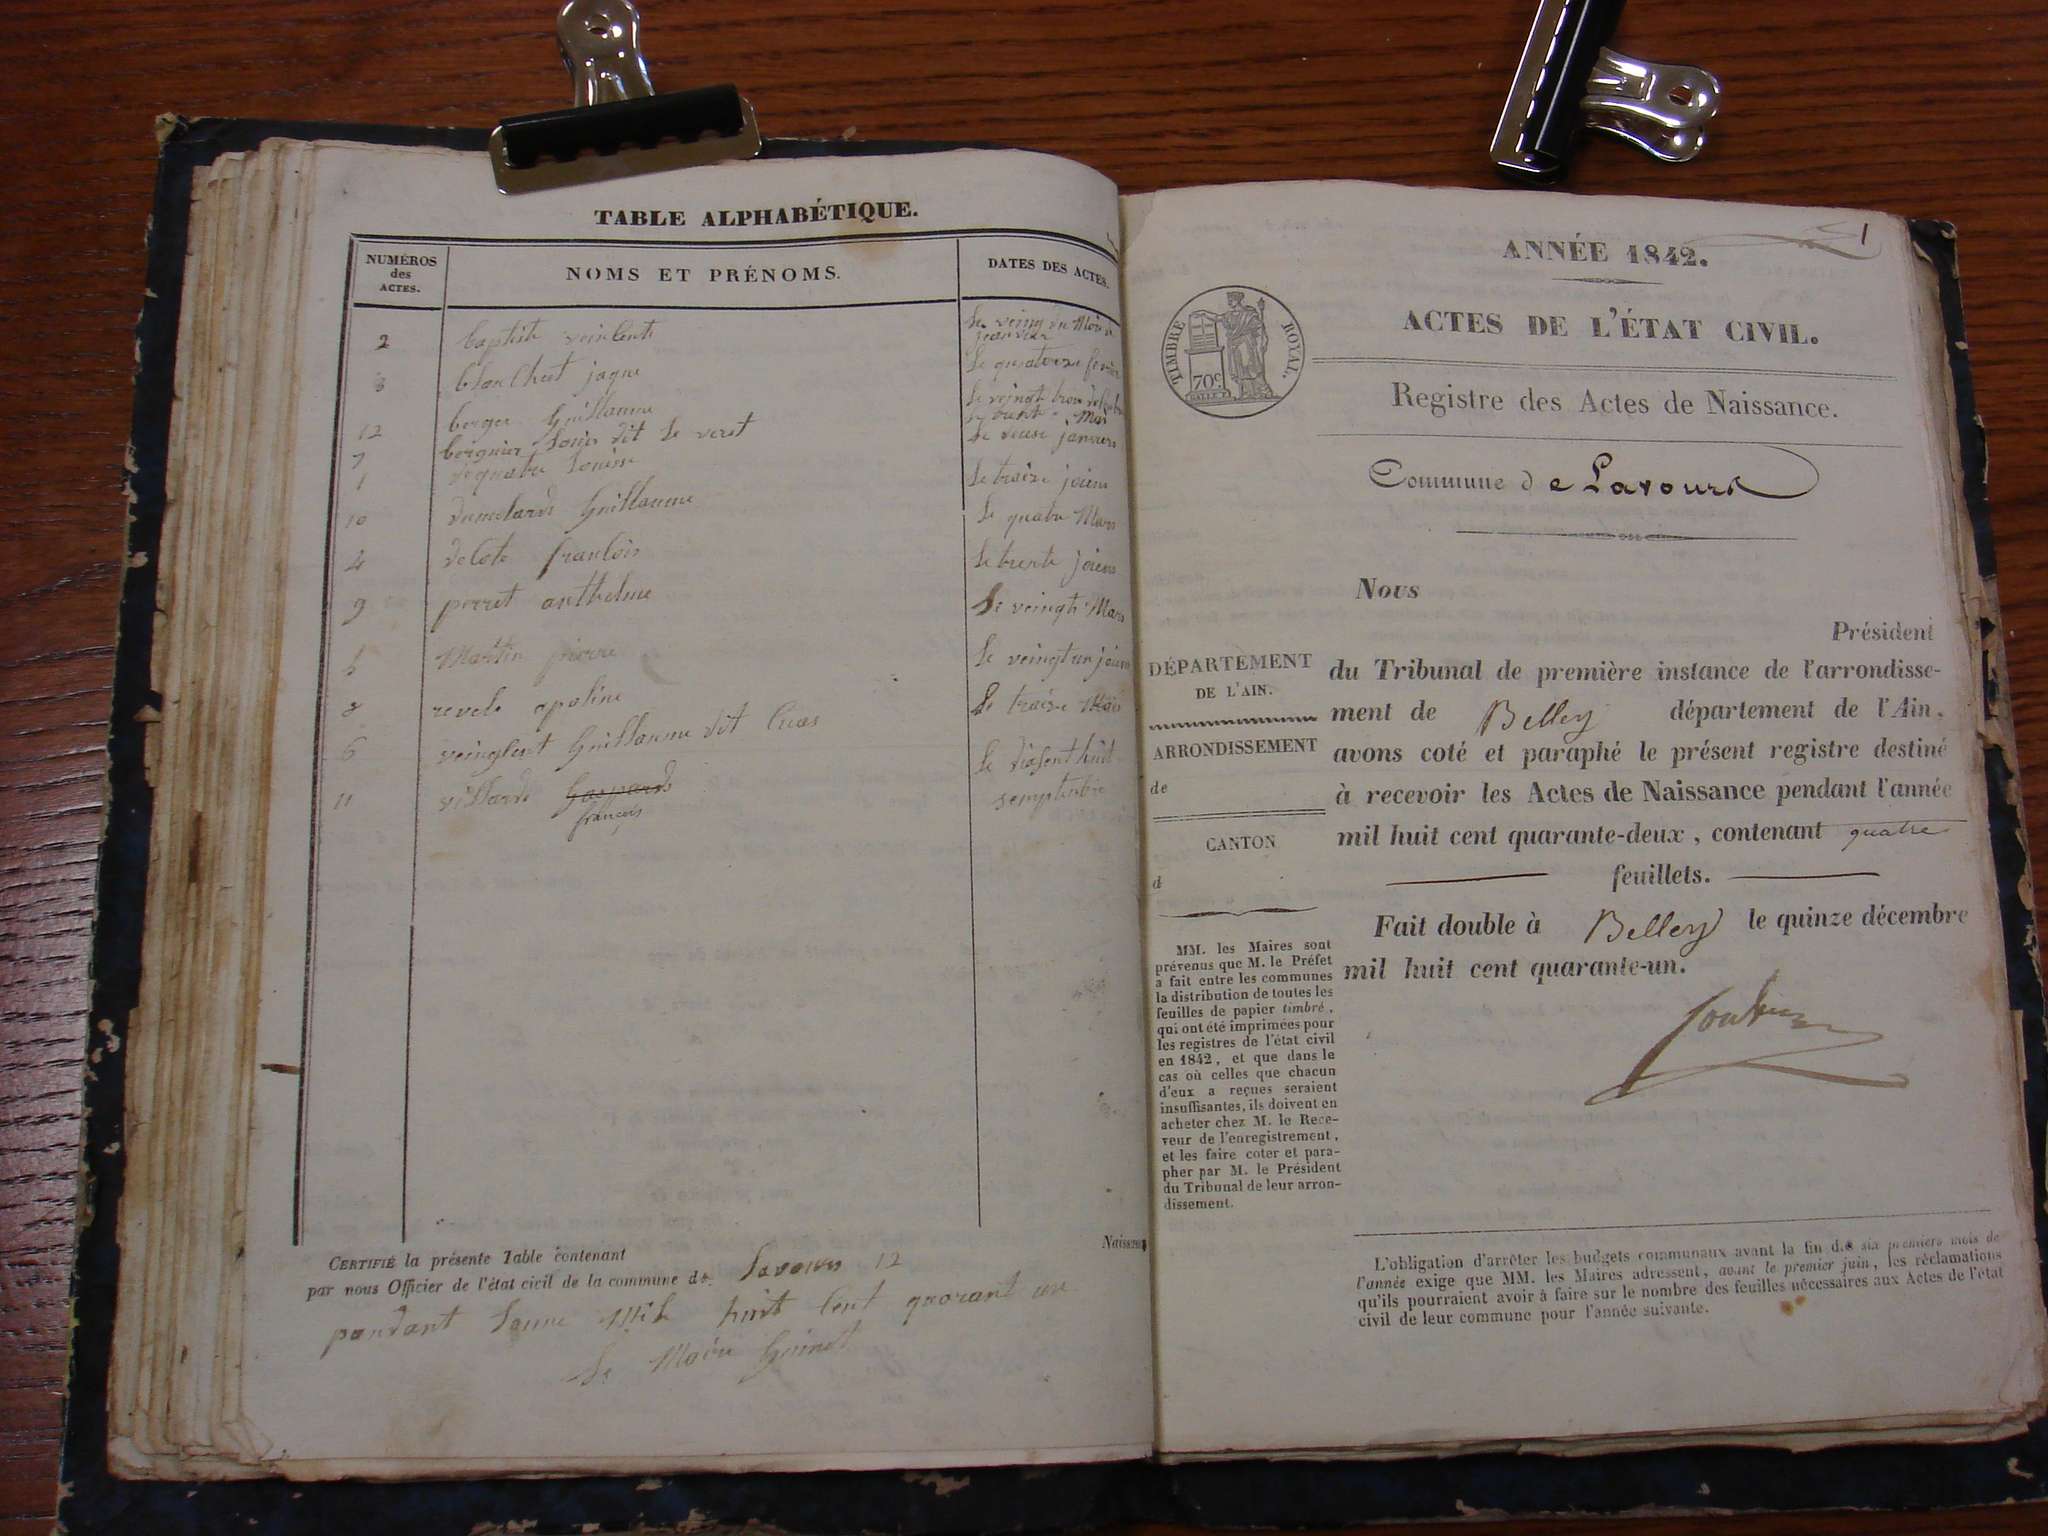 TABLE ALPHABÉTIQUE.
NUMÉROS
des
ACTES.
NOMS ET PRÉNOMS.
DATES DES ACTES.
2 baptiste veincent le veing du Mois de
janvier
3 blanchet jaque le quatorze fevrier
12 berger Guillaume
7 bergnier louis dit le veret
1 le deuse janvier
10 dumolard Guillaume le traize joien
4 decote francois le quatre Mars
9 perret anthelme le trente joien
5 Martin pierre le veingt Mars
8 revele apoline le veingt un joien
6 veingcent Guillaume dit le traize Mars
11 villard Gaspard le disent huit
françois semptembre
CERTIFIÉ la présente Table contenant
par nous Officier de l'état civil de la commune de Lavours 12
pandant lanne Mil huit cent quarant un
le Maire Guinet
Naissance
1
ANNÉE 1842.
ACTES DE L'ÉTAT CIVIL.
TIMBRE ROYAL.
70c
Registre des Actes de Naissance.
Commune de Lavours
Nous
Président
du Tribunal de première instance de l'arrondisse-
ment de Belley département de l'Ain,
avons coté et paraphé le présent registre destiné
à recevoir les Actes de Naissance pendant l'année
mil huit cent quarante-deux, contenant quatre
feuillets.
Fait double à Belley le quinze décembre
mil huit cent quarante-un.
DÉPARTEMENT
DE L'AIN.
ARRONDISSEMENT
de
CANTON
d
MM. les Maires sont
prévenus que M. le Préfet
a fait entre les communes
la distribution de toutes les
feuilles de papier timbré,
qui ont été imprimées pour
les registres de l'état civil
en 1842, et que dans le
cas où celles que chacun
d'eux a reçues seraient
insuffisantes, ils doivent en
acheter chez M. le Rece-
veur de l'enregistrement,
et les faire coter et para-
pher par M. le Président
du Tribunal de leur arron-
dissement.
L'obligation d'arrêter les budgets communaux avant la fin des six premiers mois de
l'année exige que MM. les Maires adressent, avant le premier juin, les réclamations
qu'ils pourraient avoir à faire sur le nombre des feuilles nécessaires aux Actes de l'état
civil de leur commune pour l'année suivante.